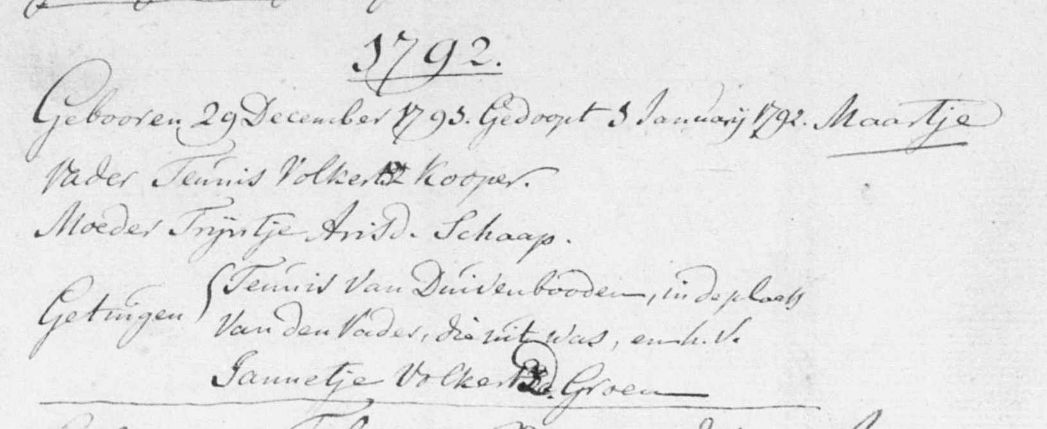 1792.
Gebooren 29 December 1793. Gedoopt 3 Januarij 1792. Maartje
Vader Teunis Volkertsz Kooper.
Moeder Trijntje Arisd. Schaap.
Getuigen Teunis van Duivenbooden, in de plaets
van den Vader, die uit was, en h. v.
Jannetje Volkertsd. Groen